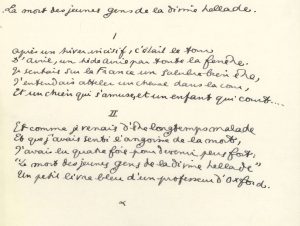 La mort des jeunes gens de la divine hellade.
I
Après un hiver incisif, c'était le tour
D'avril, un tiède avril par toute la fenêtre.
Je sentais sur la France un salubre bien être,
J'entendais atteler un cheval dans la cour,
Et un chien qui s'amuse, et un enfant qui court...
II
Et comme je venais d'être longtemps malade
Et que j'avais senti l'angoisse de la mort,
J'avais lu quatre fois pour devenir plus fort,
"La mort des jeunes gens de la divine hellade"
Un petit livre bleu d'un professeur d'Oxford.